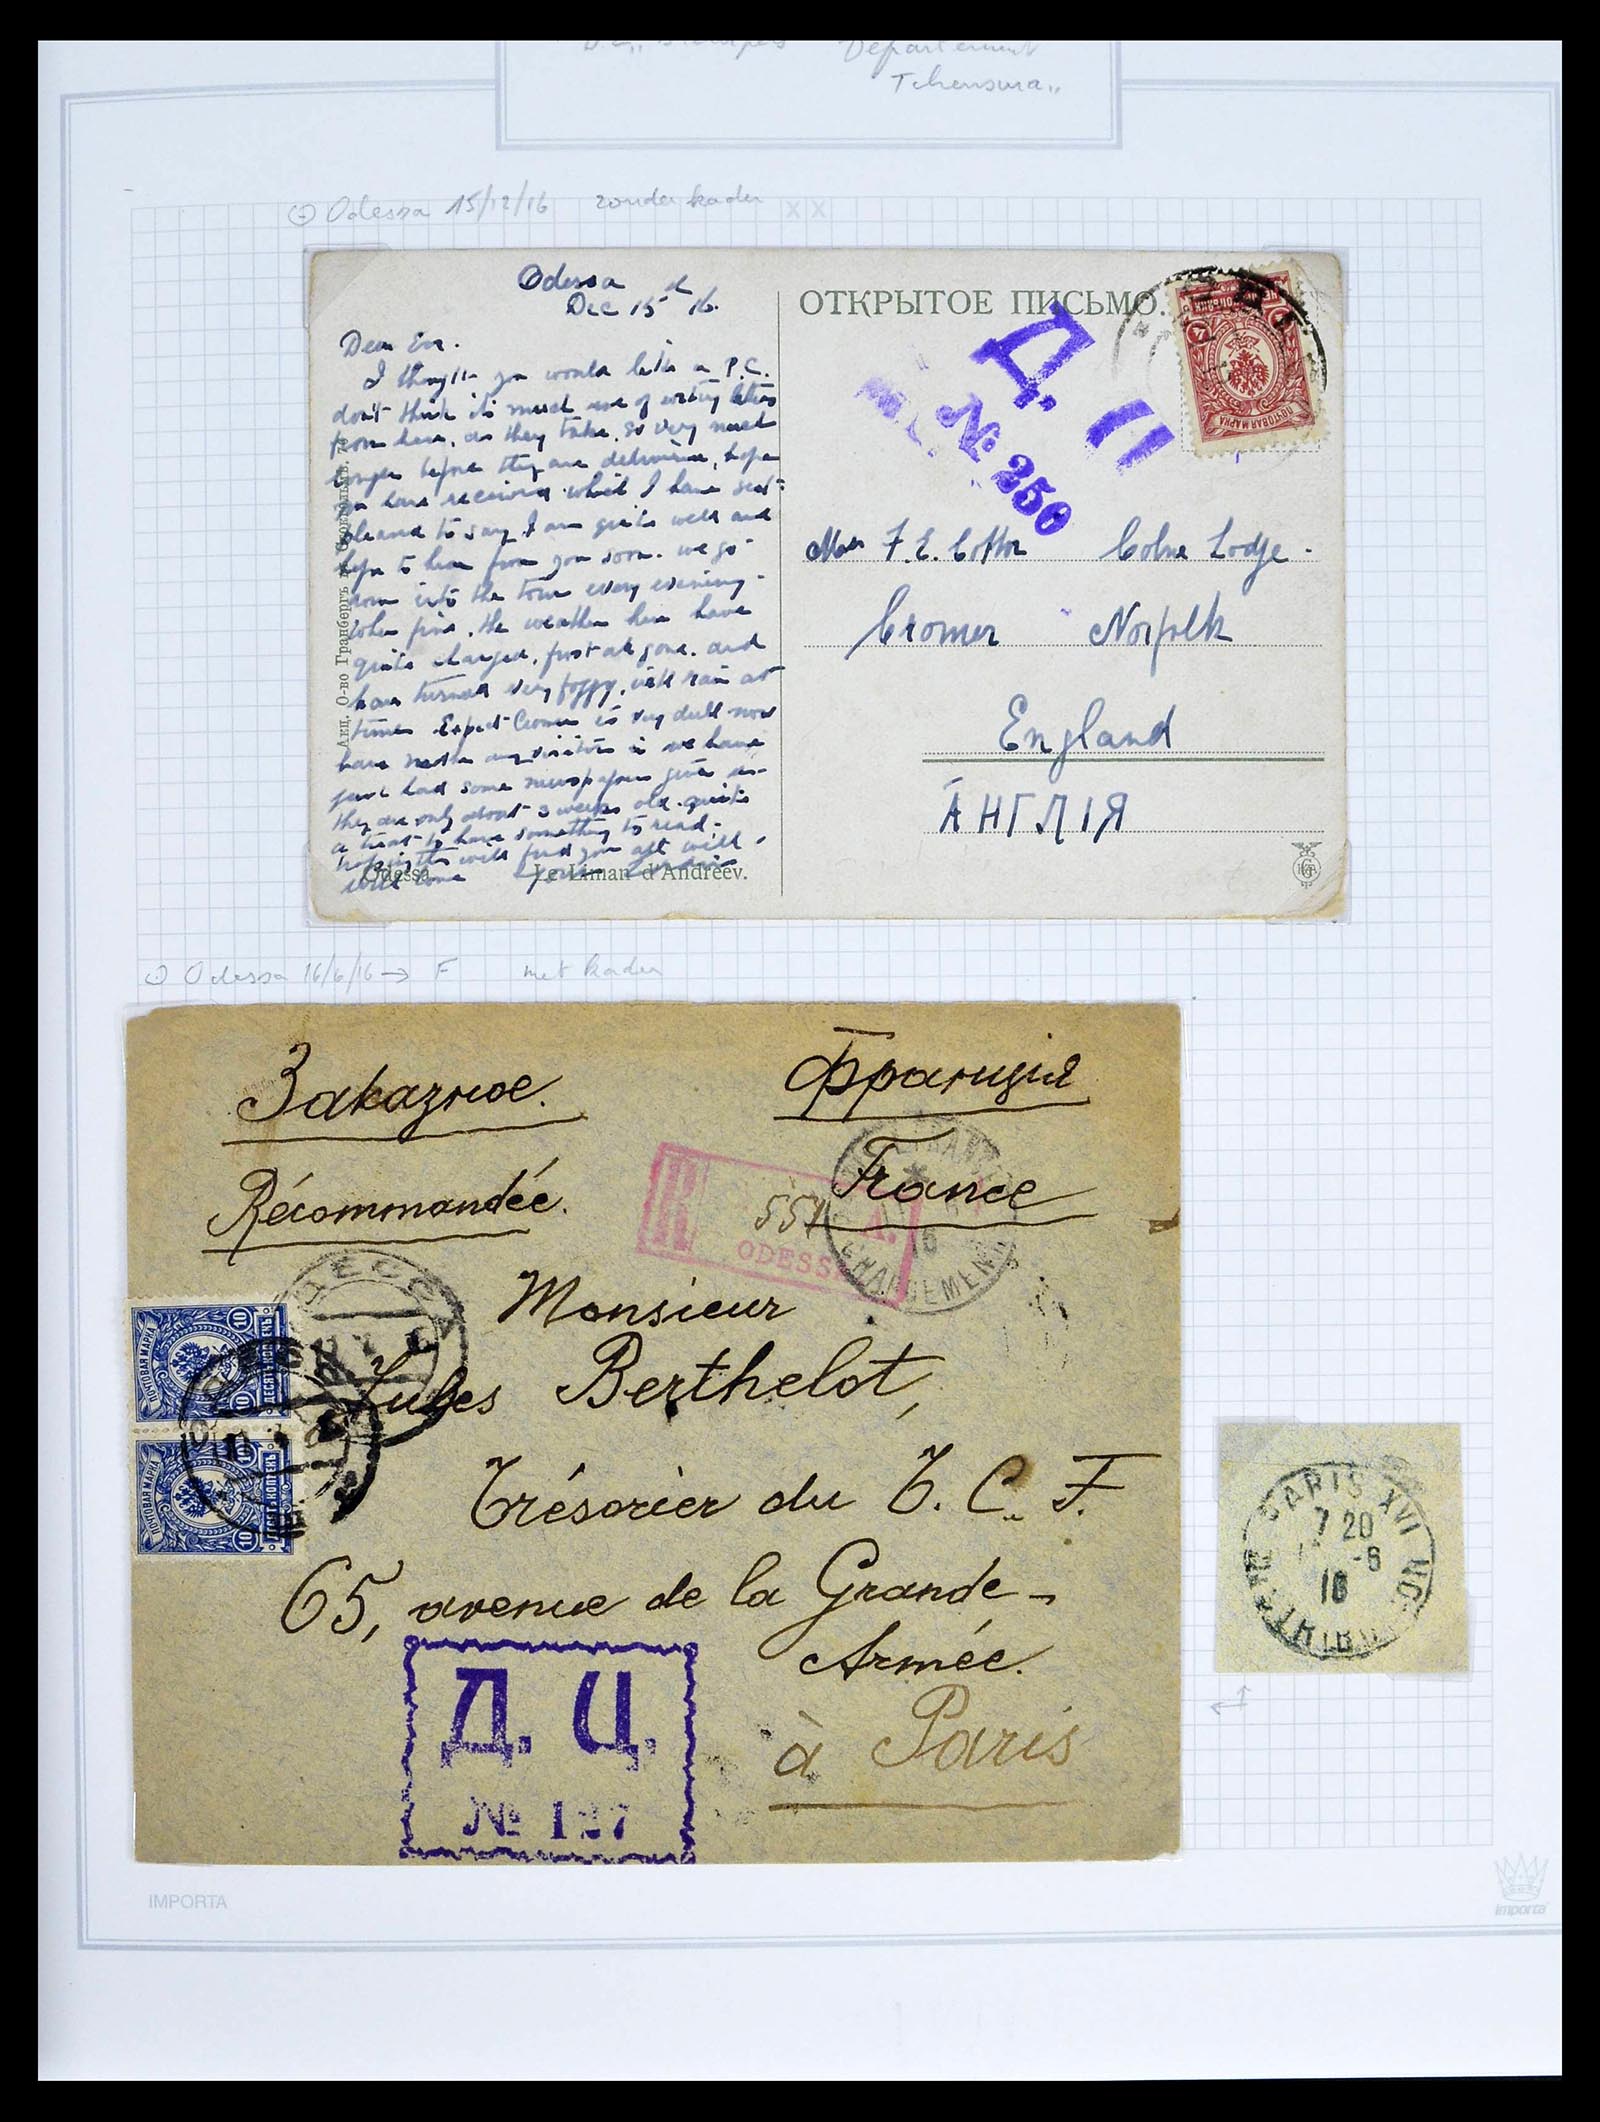 Departement
Tchensura„
Odessa 15/12/16 zonder kader XX
Odessa
Dec 15 16.
ОТКРЫТОЕ ПИСЬМО.
Д. Ц
№ 250
ПОЧТОВАЯ МАРКА
Dear
I thought you would like a P.C.
don't think its much use of writing letters
from here, as they take so very much
longer before they are delivered, hope
you have received which I have sent
pleased to say I am quite well and
hope to hear from you soon. we go
into the town every evening
when fine, the weather here have
quite changed, frost all gone. and
have turned very foggy, with rain at
times. Expect Cromer is very dull now
have any visitors we have
just had some newspapers given us
they are only about 3 weeks old. quite
a treat to have something to read.
hoping this will find you all well
Акц. О-во Гранбергъ Стокгольмъ.
Odessa. Le Liman d'Andreev.
F. E. Cotton Colne Lodge.
Cromer Norfolk
England
АНГЛІЯ
Odessa 16/6/16 → F met kader
Заказное.
Франція
Récommandée.
France
R 551 A.
ODESSA
CHARGEMENTS
ОДЕССА
Monsieur
Jules Berthelot,
Trésorier du T. C. F.
65, avenue de la Grande-
Armée.
à Paris
ПОЧТОВАЯ МАРКА 10 10 ДЕСЯТЬ КОПѢЕКЪ
ПОЧТОВАЯ МАРКА 10 10 ДЕСЯТЬ КОПѢЕКЪ
Д. Ц.
№ 127
PARIS XVI
7 20
-6
16
IMPORTA
importa